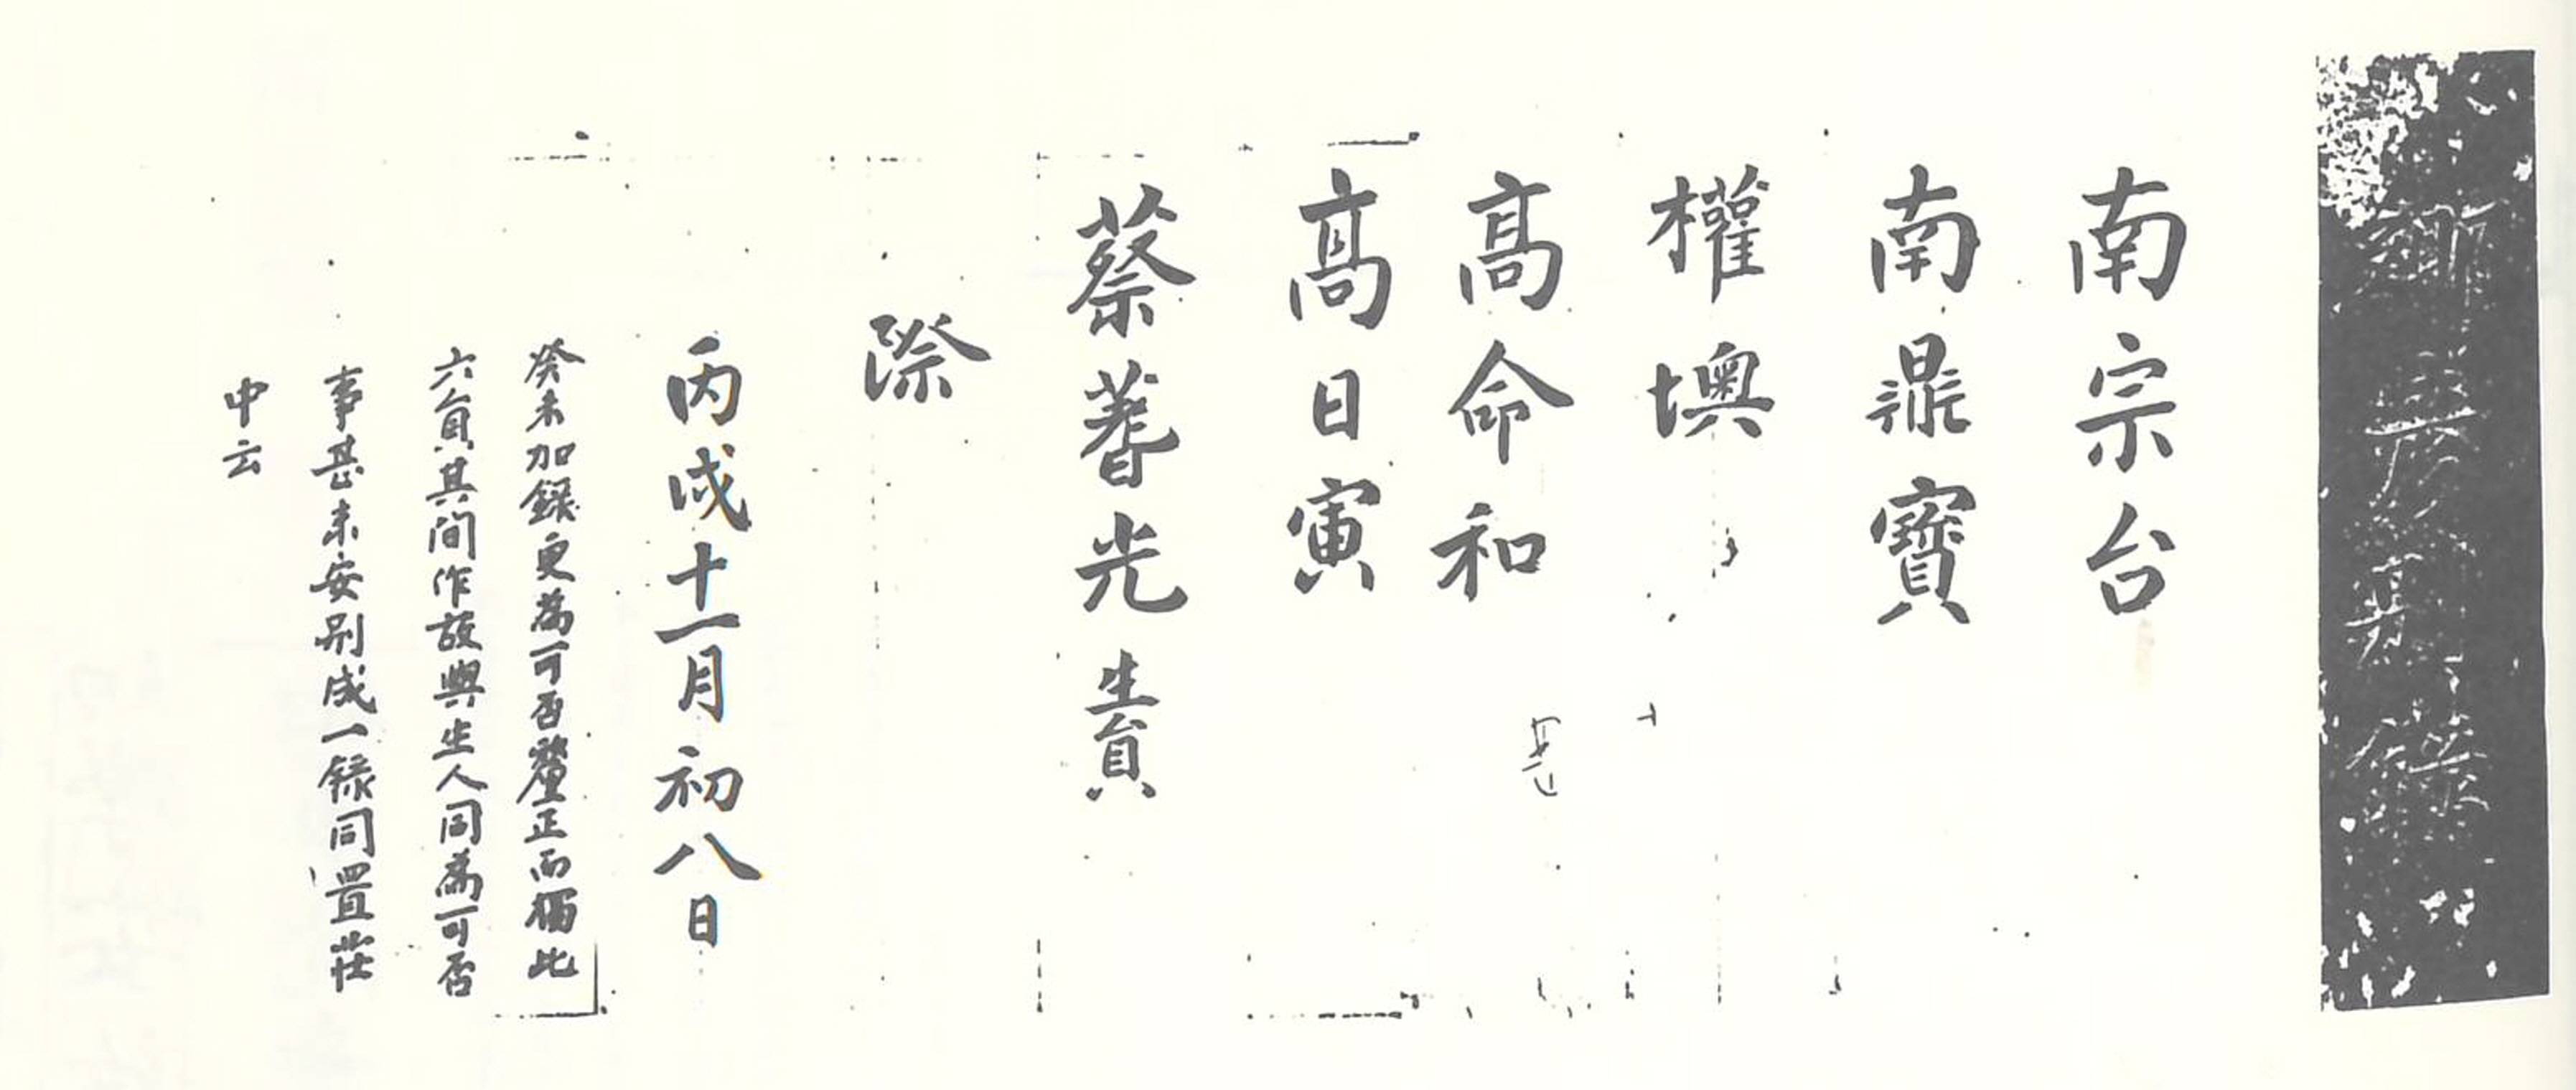 鄉員錄
南宗台
南鼎寶
權墺
高命和
高日寅
蔡蓍光 生員
際
丙戌十一月初八日
癸未加錄更為可否釐正而獨此
六員其間作故與生人同為可否
事甚未安別成一錄同置莊
中云